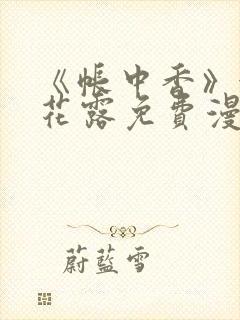 《帐中香》
花露免費漫
蔚藍雪